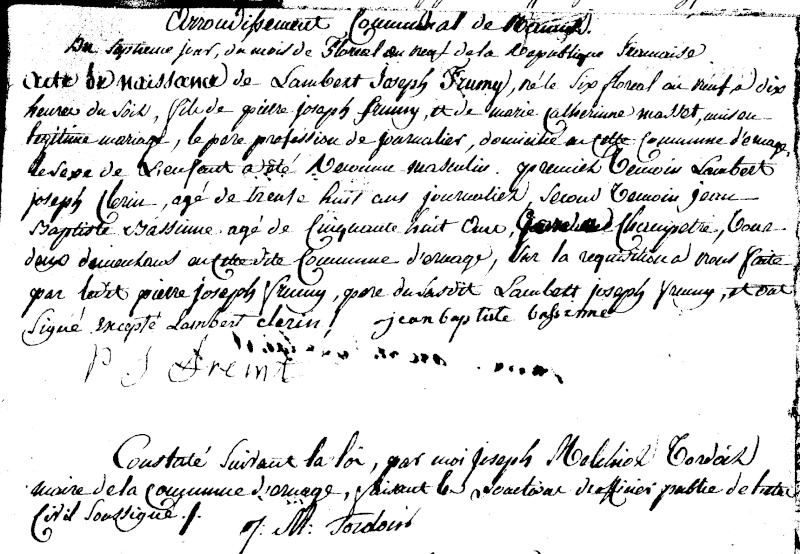 Arrondissement Communal de Namur.
Du Septieme jour, du mois de Floreal an neuf de la Republique francaise
acte de naissance de Lambert Joseph Frumy, né le six floreal an neuf a dix
heures du Soir, fils de pierre joseph frumy, et de marie catherinne massot, unis en
legitime mariage, le pere profession de journalier, domicilié en cette Commune d'ernage,
le sexe de L'enfant a été reconnu masculin. premier temoin Lambert
joseph Clerin, agé de trente huit ans journalier, second temoin jean
Baptiste Bassinne agé de Cinquante huit ans, garde Champetre, tour
deux demeurans en cette dite Commune d'ernage, sur la requisition a nous faite
par ledit pierre joseph frumy, pere du susdit Lambert joseph frumy, et ont
signé excepté Lambert clerin / jean baptiste basinne
P J
Constaté suivant la loi, par moi joseph Melchior Tordoir
maire de la commune d'ernage, faisant les fonctions d'officier public de l'etat
Civil Soussigné /.
J. M. Tordoir